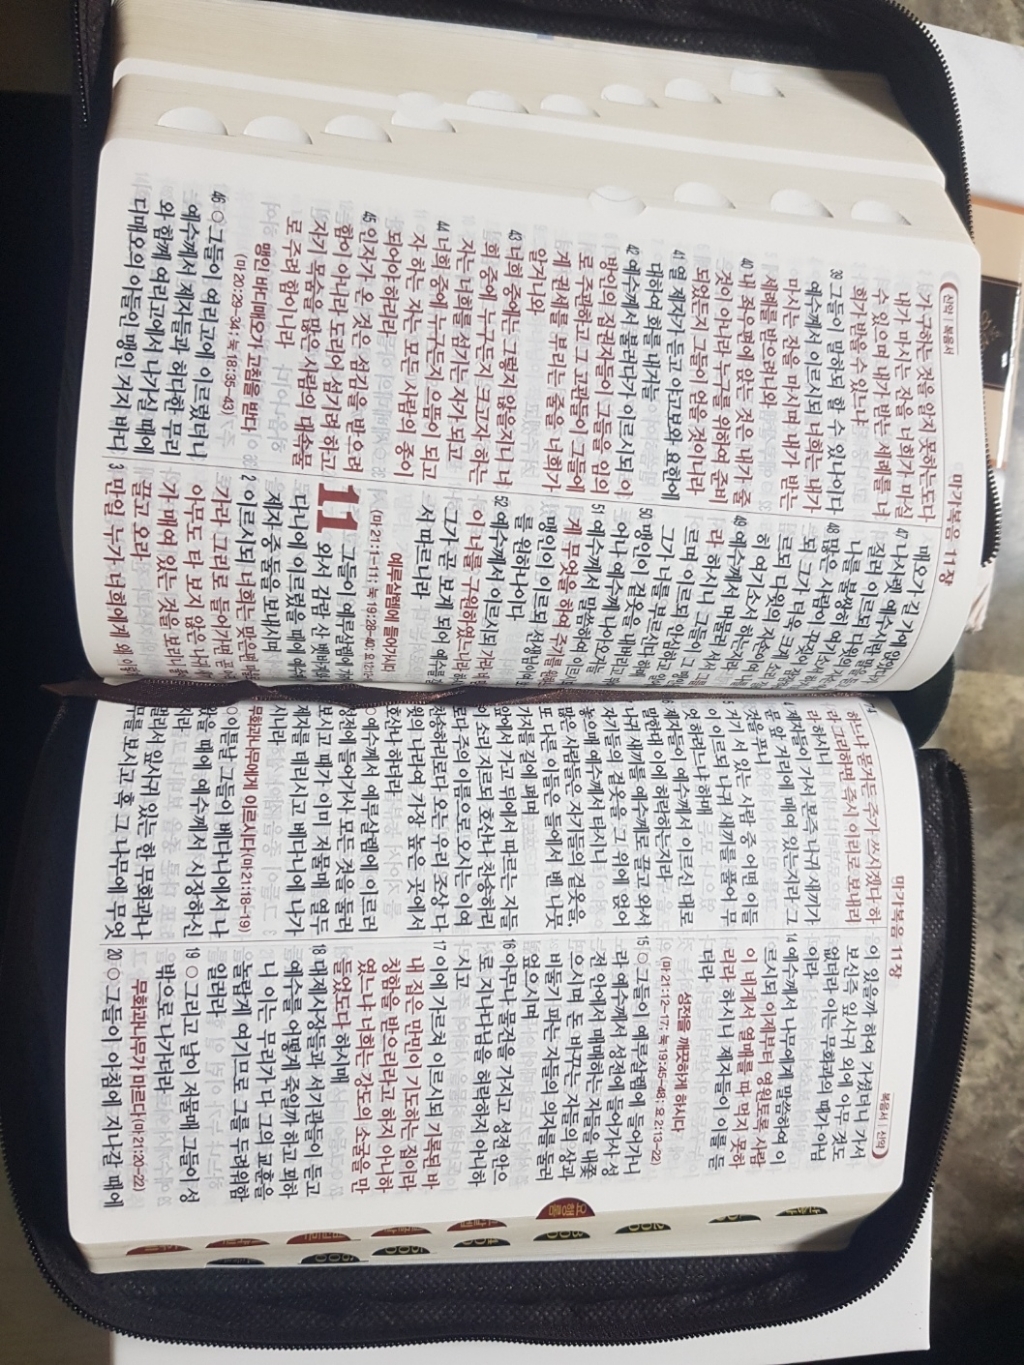 신약 | 복음서
마가복음 11장
가 구하는 것을 알지 못하는도다
내가 마시는 잔을 너희가 마실
수 있으며 내가 받는 세례를 너
희가 받을 수 있느냐
39 그들이 말하되 할 수 있나이다
예수께서 이르시되 너희는 내가
마시는 잔을 마시며 내가 받는
세례를 받으려니와
40 내 좌우편에 앉는 것은 내가 줄
것이 아니라 누구를 위하여 준비
되었든지 그들이 얻을 것이니라
41 열 제자가 듣고 야고보와 요한에
대하여 화를 내거늘
42 예수께서 불러다가 이르시되 이
방인의 집권자들이 그들을 임의
로 주관하고 그 고관들이 그들에
게 권세를 부리는 줄을 너희가
알거니와
43 너희 중에는 그렇지 않을지니 너
희 중에 누구든지 크고자 하는
자는 너희를 섬기는 자가 되고
44 너희 중에 누구든지 으뜸이 되고
자 하는 자는 모든 사람의 종이
되어야 하리라
45 인자가 온 것은 섬김을 받으려
함이 아니라 도리어 섬기려 하고
자기 목숨을 많은 사람의 대속물
로 주려 함이니라
맹인 바디매오가 고침을 받다
(마 20:29-34; 눅 18:35-43)
46 ○그들이 여리고에 이르렀더니
예수께서 제자들과 허다한 무리
와 함께 여리고에서 나가실 때에
디매오의 아들인 맹인 거지 바디
매오가 길 가에 앉았다가
47 나사렛 예수시란 말을
질러 이르되 다윗의
나를 불쌍히 여기소서
48 많은 사람이 꾸짖어
되 그가 더욱 크게 소리
르되 다윗의 자손이여
히 여기소서 하는지라
49 예수께서 머물러 서서 그를
라 하시니 그들이 그 맹인을
르며 이르되 안심하고 일어
그가 너를 부르신다 하매
50 맹인이 겉옷을 내버리고 뛰어
어나 예수께 나아오거늘
51 예수께서 말씀하여 이르
게 무엇을 하여 주기를 원
맹인이 이르되 선생님이여
를 원하나이다
52 예수께서 이르시되 가라 네
이 너를 구원하였느니라 하시
그가 곧 보게 되어 예수를 길
서 따르니라
예루살렘에 들어가시다
(마 21:1-11; 눅 19:28-40; 요 12:12-
11 그들이 예루살렘에 가
와서 감람 산 벳바게
다니에 이르렀을 때에 예수
제자 중 둘을 보내시며
2 이르시되 너희는 맞은편 마을
가라 그리로 들어가면 곧
아무도 타 보지 않은 나귀
가 매여 있는 것을 보리니
끌고 오라
3 만일 누가 너희에게 왜 이렇
마가복음 11장
복음서 | 신약
하느냐 묻거든 주가 쓰시겠다 하
라 그리하면 즉시 이리로 보내리
라 하시니
4 제자들이 가서 본즉 나귀 새끼가
문 앞 거리에 매여 있는지라 그
것을 푸니
5 거기 서 있는 사람 중 어떤 이들
이 이르되 나귀 새끼를 풀어 무
엇 하려느냐 하매
6 제자들이 예수께서 이르신 대로
말한대 이에 허락하는지라
나귀 새끼를 예수께로 끌고 와서
자기들의 겉옷을 그 위에 얹어
놓으매 예수께서 타시니
많은 사람들은 자기들의 겉옷을,
또 다른 이들은 들에서 벤 나뭇
가지를 길에 펴며
앞에서 가고 뒤에서 따르는 자들
이 소리 지르되 호산나 찬송하리
로다 주의 이름으로 오시는 이여
찬송하리로다 오는 우리 조상 다
윗의 나라여 가장 높은 곳에서
호산나 하더라
예수께서 예루살렘에 이르러
성전에 들어가사 모든 것을 둘러
보시고 때가 이미 저물매 열두
제자를 데리시고 베다니에 나가
시니라
무화과나무에게 이르시다(마 21:18-19)
○이튿날 그들이 베다니에서 나
왔을 때에 예수께서 시장하신
지라
멀리서 잎사귀 있는 한 무화과나
무를 보시고 혹 그 나무에 무엇
이 있을까 하여 가셨더니 가서
보신즉 잎사귀 외에 아무 것도
없더라 이는 무화과의 때가 아님
이라
14 예수께서 나무에게 말씀하여 이
르시되 이제부터 영원토록 사람
이 네게서 열매를 따 먹지 못하
리라 하시니 제자들이 이를 듣
더라
성전을 깨끗하게 하시다
(마 21:12-17; 눅 19:45-48; 요 2:13-22)
15 ○그들이 예루살렘에 들어가니
라 예수께서 성전에 들어가사 성
전 안에서 매매하는 자들을 내쫓
으시며 돈 바꾸는 자들의 상과
비둘기 파는 자들의 의자를 둘러
엎으시며
16 아무나 물건을 가지고 성전 안으
로 지나다님을 허락하지 아니하
시고
17 이에 가르쳐 이르시되 기록된 바
내 집은 만민이 기도하는 집이라
칭함을 받으리라고 하지 아니하
였느냐 너희는 강도의 소굴을 만
들었도다 하시매
18 대제사장들과 서기관들이 듣고
예수를 어떻게 죽일까 하고 꾀하
니 이는 무리가 다 그의 교훈을
놀랍게 여기므로 그를 두려워함
일러라
19 ○그리고 날이 저물매 그들이 성
밖으로 나가더라
무화과나무가 마르다(마 21:20-22)
20 ○그들이 아침에 지나갈 때에